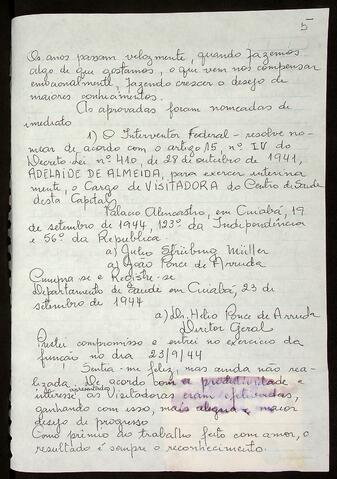 5
Os anos passam velozmente, quando fazemos
algo de que gostamos, o que vem nos compensar
emocionalmente, fazendo crescer o desejo de
maiores conhecimentos.
As aprovadas foram nomeadas de
imediato
1) O Interventor Federal - resolve no-
mear de acordo com o artigo 15, nº IV do
Decreto lei nº 410, de 28 de outubro de 1941,
ADELAIDE DE ALMEIDA, para exercer interina
mente, o Cargo de VISITADORA do Centro de Saúde
desta Capital,
Palácio Alencastro, em Cuiabá, 19
de setembro de 1944, 123º da Independência
e 56º da República -
a) Julio Strübing Müller
a) João Ponce de Arruda
Cumpra-se e Registre-se
Departamento de Saúde em Cuiabá, 23 de
setembro de 1944
a) Dr. Helio Ponce de Arruda
Diretor Geral
Prestei compromisso e entrei no exercício da
função no dia 23/9/44
Sentia-me feliz, mas ainda não rea-
lizada. De acordo com a produtividade e
interesse apresentados, as Visitadoras eram efetivadas,
ganhando com isso, mais alegria e maior
desejo de progresso
Como prêmio do trabalho feito com amor, o
resultado é sempre o reconhecimento.